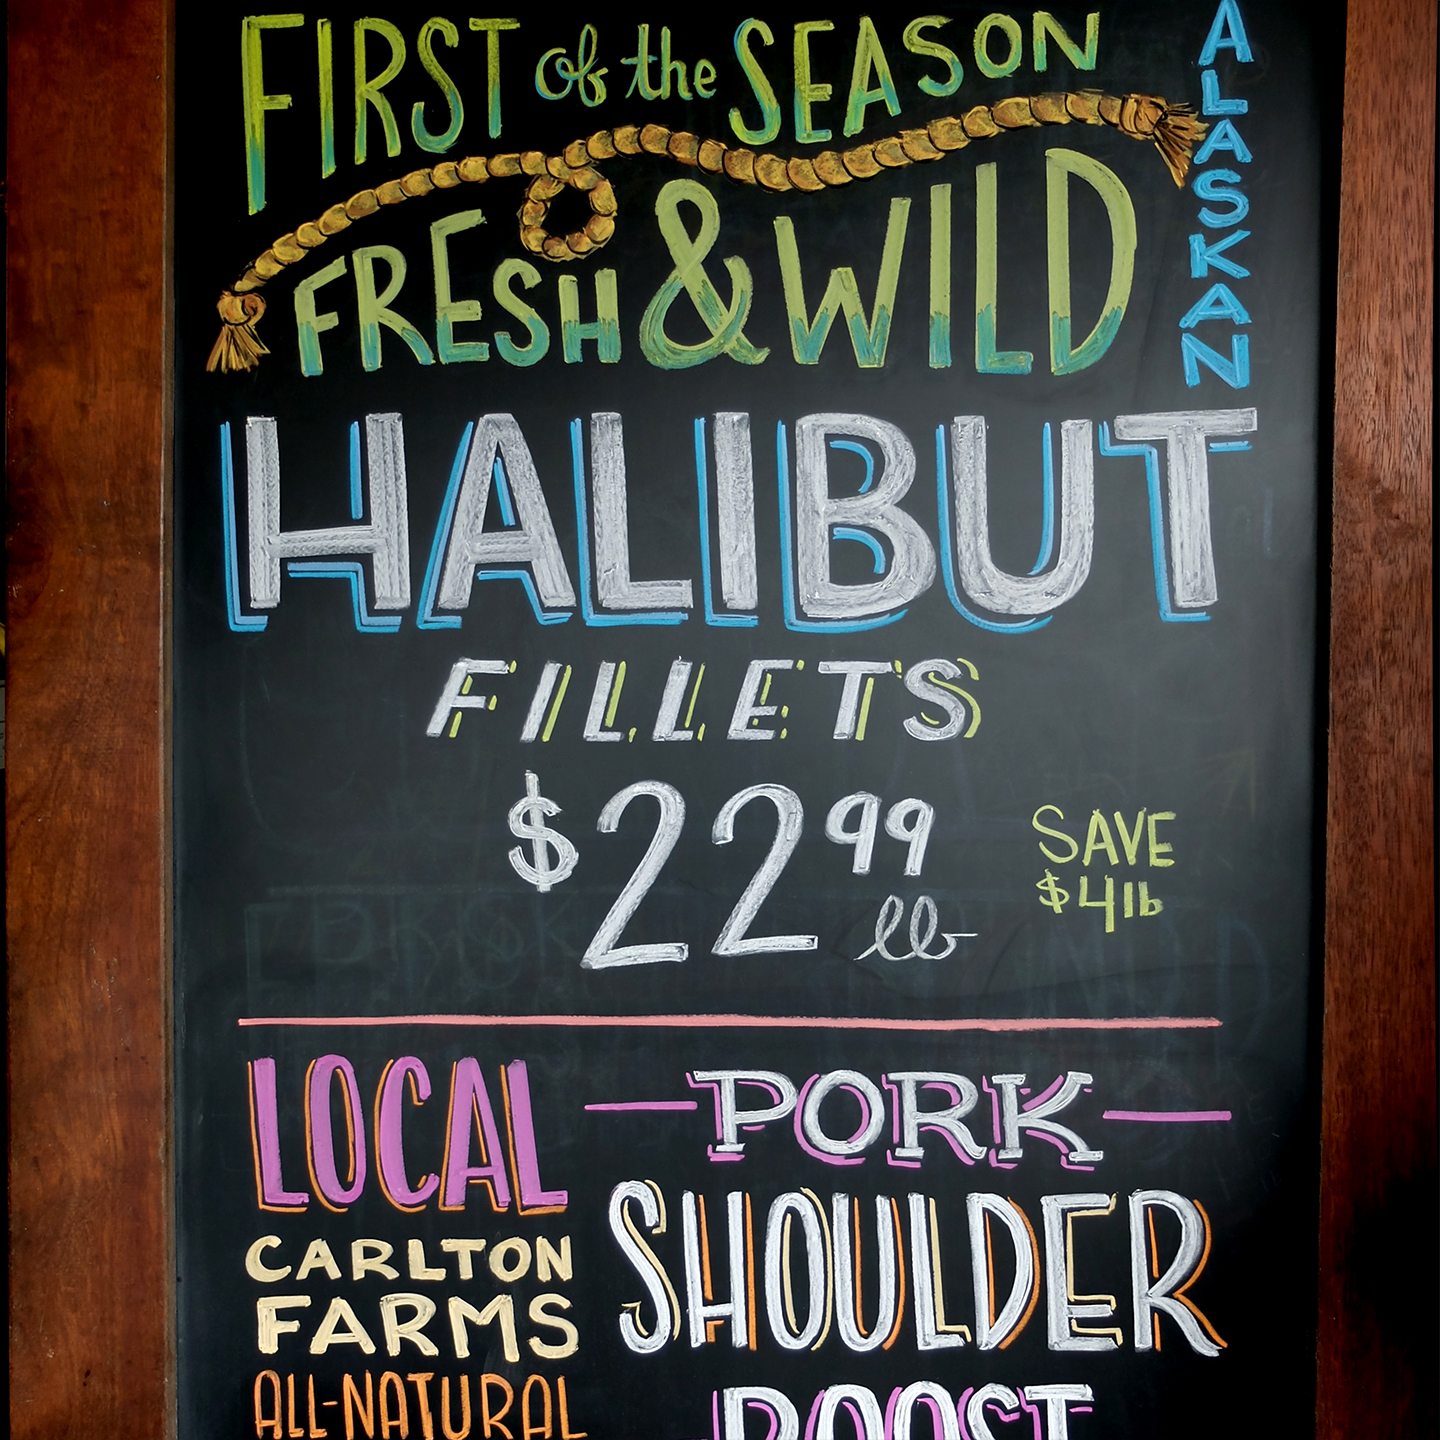 FIRST of the SEASON
FRESH & WILD
ALASKAN
HALIBUT
FILLETS
$22 99 lb
SAVE
$4 lb
LOCAL
CARLTON
FARMS
ALL-NATURAL
PORK
SHOULDER
ROOST